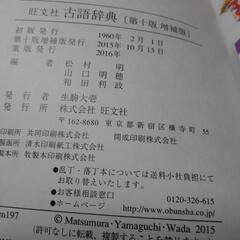 旺文社 古語辞典〔第十版 増補版〕
初版発行 1960年2月1日
第十版増補版発行 2015年10月15日
重版発行 2016年
編者 松村明
山口明穂
和田利政
発行者 生駒大壱
発行所 株式会社 旺文社
〒162-8680 東京都新宿区横寺町55
印刷所 共同印刷株式会社 開成印刷株式会社
製函所 清水印刷紙工株式会社
製本所 牧製本印刷株式会社
●乱丁・落丁本については送料小社負担にて
お取り替えいたします
●お客様相談窓口 0120-326-615
●ホームページ http://www.obunsha.co.jp/
m197
© Matsumura・Yamaguchi・Wada 2015
(許可なしに転載、複製することを禁